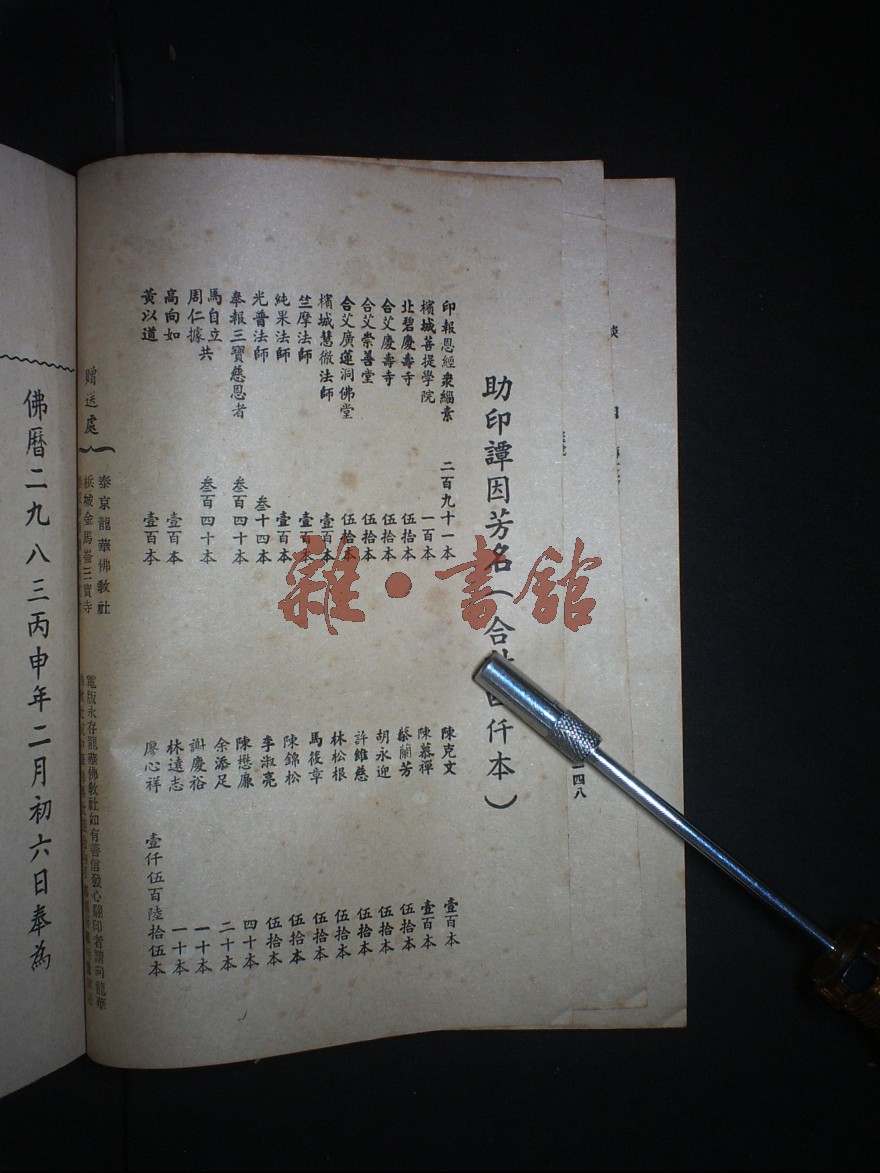 助印譚因芳名（合計 仟本）
印報恩經衆緇素 二百九十一本
檳城菩提學院 一百本
北碧慶壽寺 伍拾本
合艾慶壽寺 伍拾本
合艾崇善堂 伍拾本
合艾廣蓮洞佛堂 伍拾本
檳城慧微法師 壹百本
竺摩法師 壹百本
純果法師 壹百本
光普法師 叁十四本
奉報三寶慈恩者 叁百四十本
馬自立
周仁據共 叁百四十本
高向如 壹百本
黃以道 壹百本
陳克文 壹百本
陳慕禪 壹百本
蔡蘭芳 伍拾本
胡永迎 伍拾本
許維慈 伍拾本
林松根 伍拾本
馬筱章 伍拾本
陳錦松 伍拾本
李淑亮 伍拾本
陳懋廉 四十本
余添足 二十本
謝慶裕 一十本
林遠志 一十本
廖心祥 壹仟伍百陸拾伍本
贈送處
泰京龍華佛教社
檳城金馬崙三寶寺
電版永存龍華佛教社如有善信發心翻印者請向龍華
佛曆二九八三丙申年二月初六日奉為
四八
雜·書舘